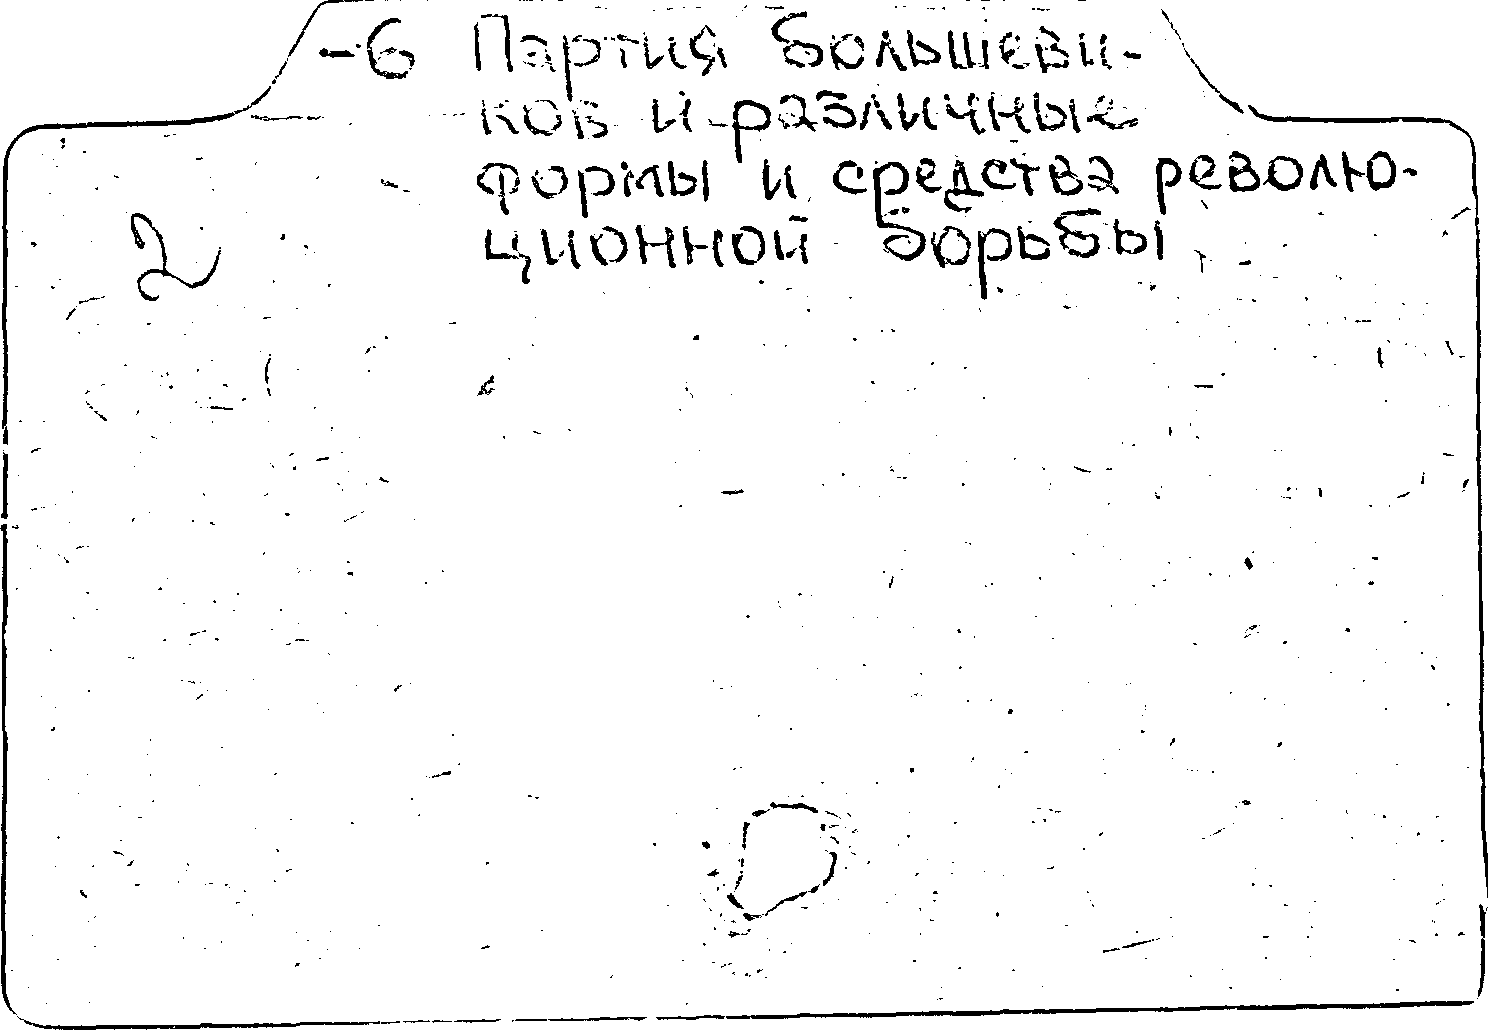 -6 Партия большеви-
ков и различные
формы и средства револю-
ционной борьбы
2